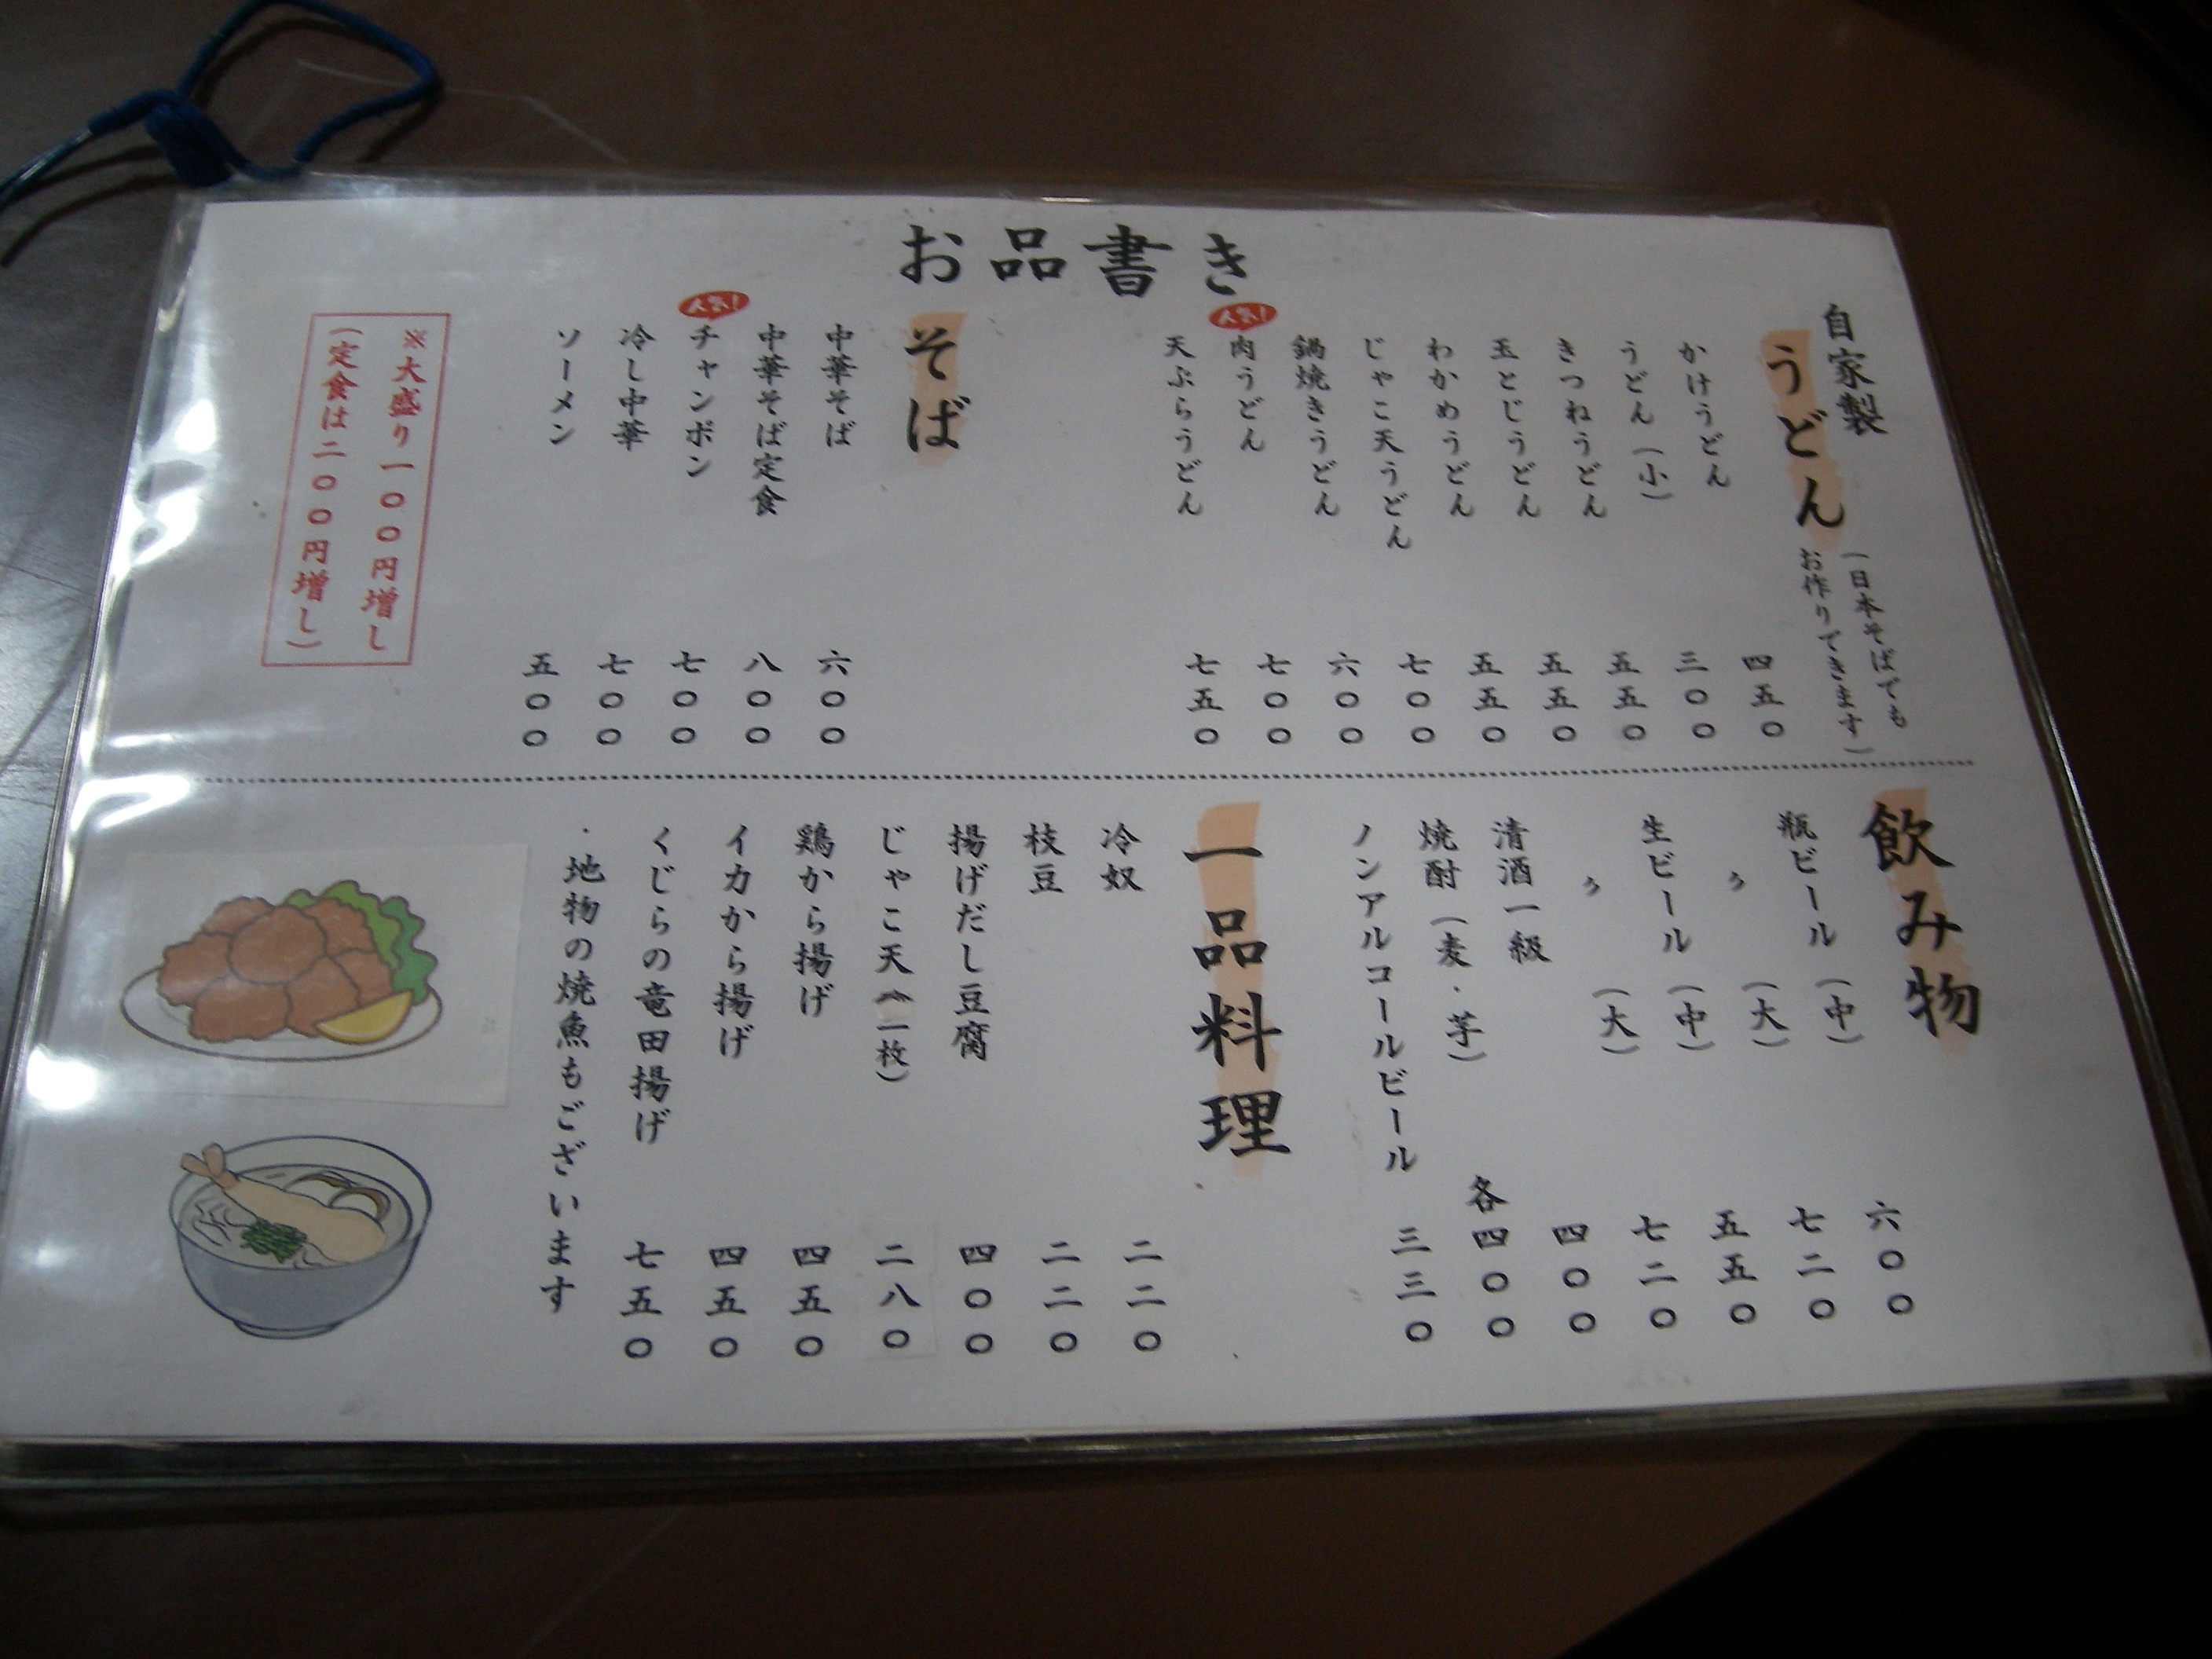 お品書き
自家製
うどん
(日本そばでも
お作りできます)
かけうどん 四五〇
うどん(小) 三〇〇
きつねうどん 五五〇
玉とじうどん 五五〇
わかめうどん 五五〇
じゃこ天うどん 七〇〇
鍋焼きうどん 六〇〇
人気!
肉うどん 七〇〇
天ぷらうどん 七五〇
そば
中華そば 六〇〇
中華そば定食 八〇〇
人気!
チャンポン 七〇〇
冷し中華 七〇〇
ソーメン 五〇〇
※大盛り一〇〇円増し
(定食は二〇〇円増し)
飲み物
瓶ビール (中) 六〇〇
〃 (大) 七二〇
生ビール (中) 五五〇
〃 (大) 七二〇
清酒一級 四〇〇
焼酎(麦・芋) 各四〇〇
ノンアルコールビール 三三〇
一品料理
冷奴 二二〇
枝豆 二二〇
揚げだし豆腐 四〇〇
じゃこ天(一枚) 二八〇
鶏から揚げ 四五〇
イカから揚げ 四五〇
くじらの竜田揚げ 七五〇
・地物の焼魚もございます